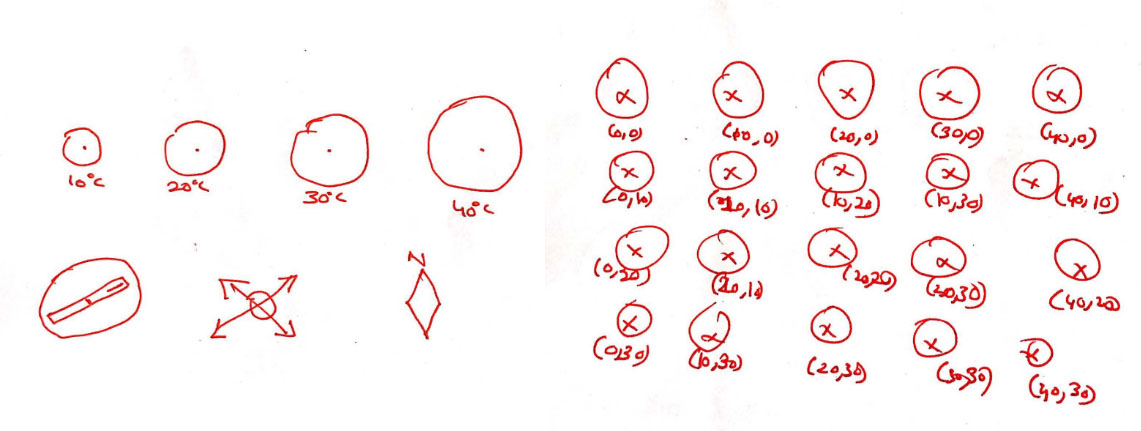 10°C
20°C
30°C
40°C
N
(0,0)
(10,0)
(20,0)
(30,0)
(40,0)
(0,10)
(10,10)
(10,20)
(10,30)
(40,10)
(0,20)
(20,10)
(20,20)
(20,30)
(40,20)
(0,30)
(10,30)
(20,30)
(30,30)
(40,30)